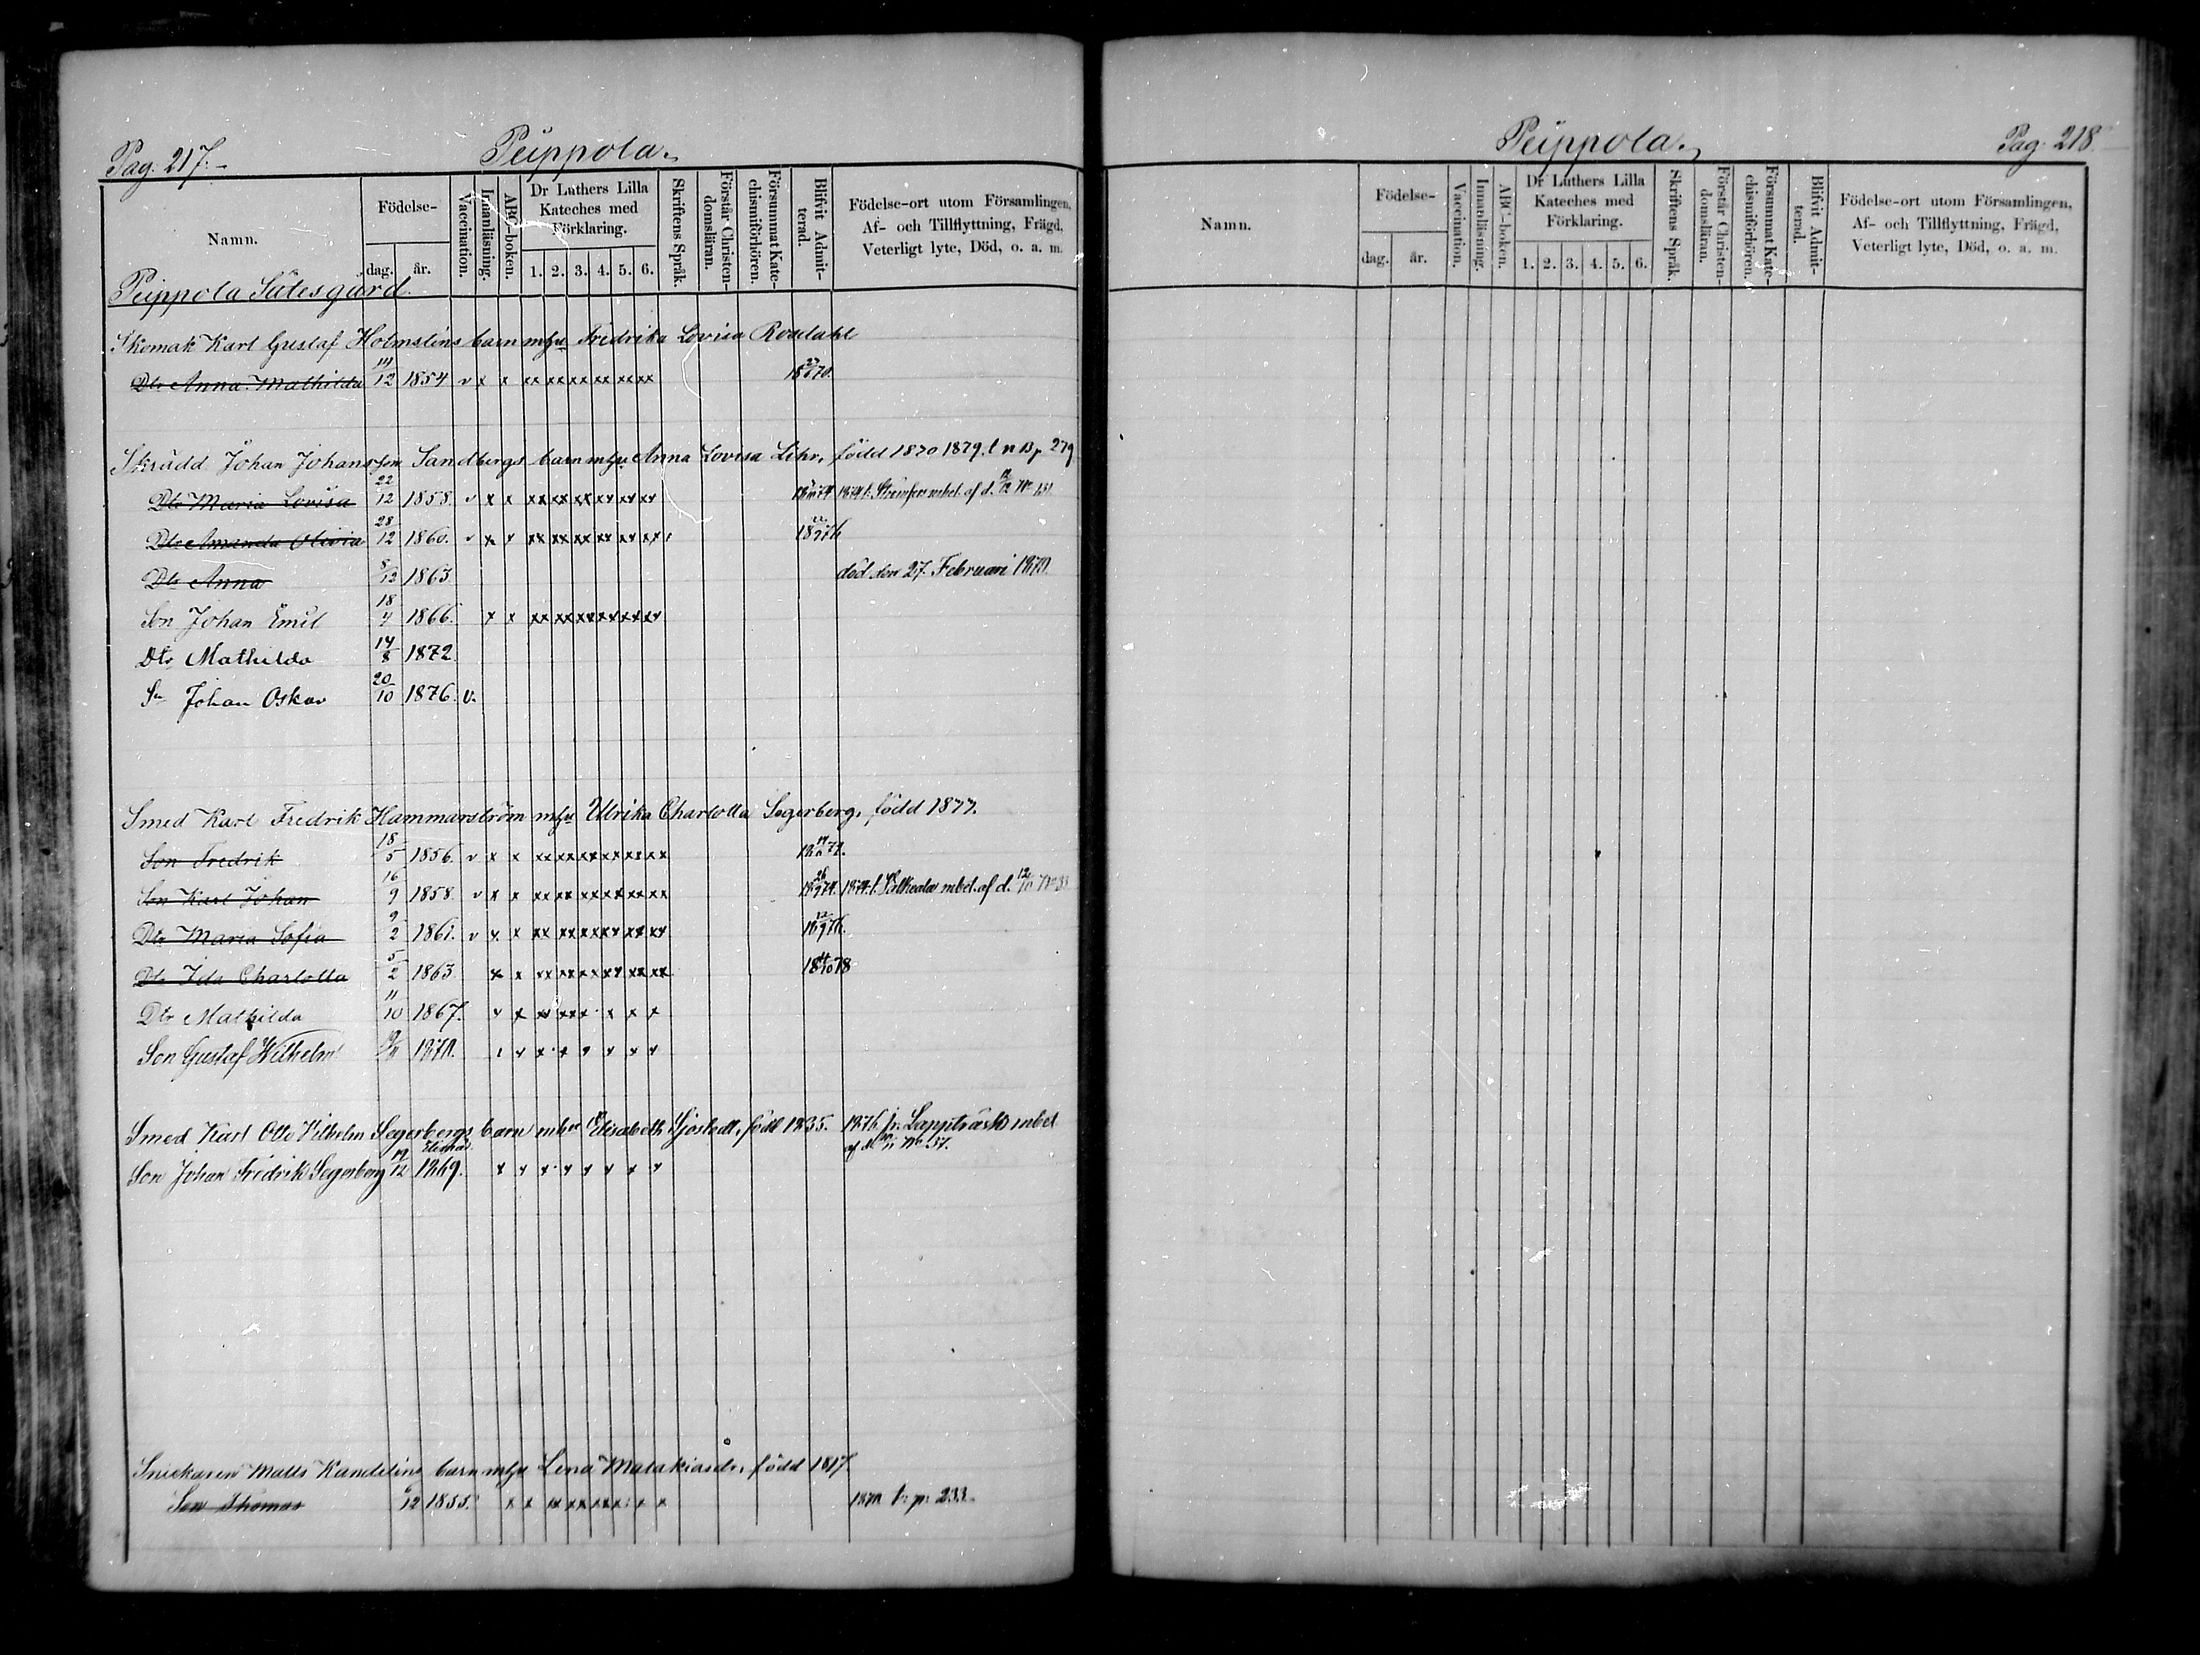 Pag. 217.
Peippola.
Namn.
Födelse-
dag. år.
Vaccination.
Innanläsning.
ABC-boken.
Dr Luthers Lilla
Kateches med
Förklaring.
1. 2. 3. 4. 5. 6.
Skriftens Språk.
Förstår Christen-
domsläran.
Försummat Kate-
chismiförhören.
Blifvit Admit-
terad.
Födelse-ort utom Församlingen,
Af- och Tillflyttning, Frägd,
Veterligt lyte, Död, o. a. m.
Peippola Sätesgård.
Skomak Karl Gustaf Holmsténs barn mhu Fredrika Lovisa Rosdahl
Dtr Anna Mathilda 14/12 1854 v x x xx xx xx xx xx xx 18 27/ 70.
Skrädd. Johan Johansson Sandbergs barn mhu Anna Lovisa Lihr, född 1820 1879. t n B p 279
Dtr Maria Lovisa 22/12 1858. v x x xx xx xx xx xx xx 1874 t. mbet. af d.
Dtr Amanda Olivia 28/12 1860. v x x xx xx xx xx xx xx
Dtr Anna 8/12 1863. död den 27. Februari 1870.
Son Johan Emil 18/4 1866. x x xx xx xx xx xx xx
Dtr Mathilda 14/8 1872
Sn Johan Oskar 20/10 1876. v.
Smed Karl Fredrik Hammarström mhu Ulrika Charlotta Segerberg, född 1877.
Son Fredrik 18/5 1856. v x x xx xx xx xx xx xx
Son Karl Johan 16/9 1858. v x x xx xx xx xx xx xx 18 26/9 74. 1874. t. mbet. af d. 12/10 No
Dtr Maria Sofia 9/2 1861. v x x xx xx xx xx xx xx 18 /9 76.
Dtr Ida Charlotta 5/2 1863 x x xx xx xx xx xx xx 18 /10 78
Dtr Mathilda 11/10 1867. v x xx xx x x x x
Son Gustaf Wilhelm 1870.
Smed Karl Otto Vilhelm Segerbergs barn mhu Elisabeth Sjöstedt, född 1835. 1876 fr. Lappträsk mbet
af d. No 57.
Elimä
Son Johan Fredrik Segerberg /12 1869. x x x x x x x x
Snickaren Matts Kandelins barn mhu Lena Malakiasdr, född 1817
Son Thomas 6/12 1855. x x xx xx xx x x x t. p. 233.
Peippola.
Pag. 218
Namn.
Födelse-
dag. år.
Vaccination.
Innanläsning.
ABC-boken.
Dr Luthers Lilla
Kateches med
Förklaring.
1. 2. 3. 4. 5. 6.
Skriftens Språk.
Förstår Christen-
domsläran.
Försummat Kate-
chismiförhören.
Blifvit Admit-
terad.
Födelse-ort utom Församlingen,
Af- och Tillflyttning, Frägd,
Veterligt lyte, Död, o. a. m.